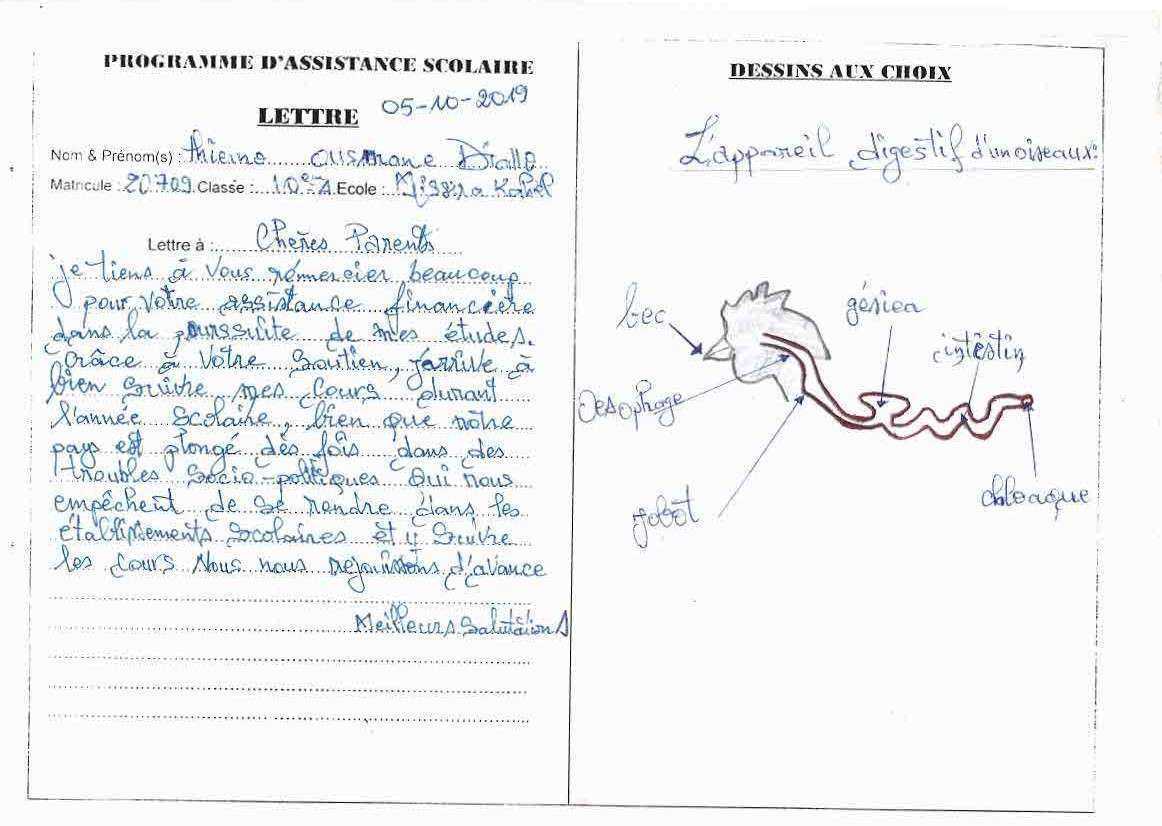 PROGRAMME D'ASSISTANCE SCOLAIRE
LETTRE 05-10-2019
Nom & Prénom(s) : thierno ousmane Diallo
Matricule : 20709 Classe : 10e A Ecole : Missira Kahel
Lettre à : Chères Parents
je tiens à vous rémercier beaucoup
pour votre assistance financière
dans la poursuite de mes études.
Grâce à votre soutien, j'arrive à
bien suivre mes cours durant
l'année scolaire, bien que nôtre
pays est plongé dès fois dans des
troubles socio-politiques qui nous
empêchent de se rendre dans les
établissements scolaires et y suivre
les cours Nous nous rejouissons d'avance
Meilleurs salutations
DESSINS AUX CHOIX
L'appareil digestif d'un oiseaux:
bec
gésiea
intèstin
Oesophage
jobôt
chloaque